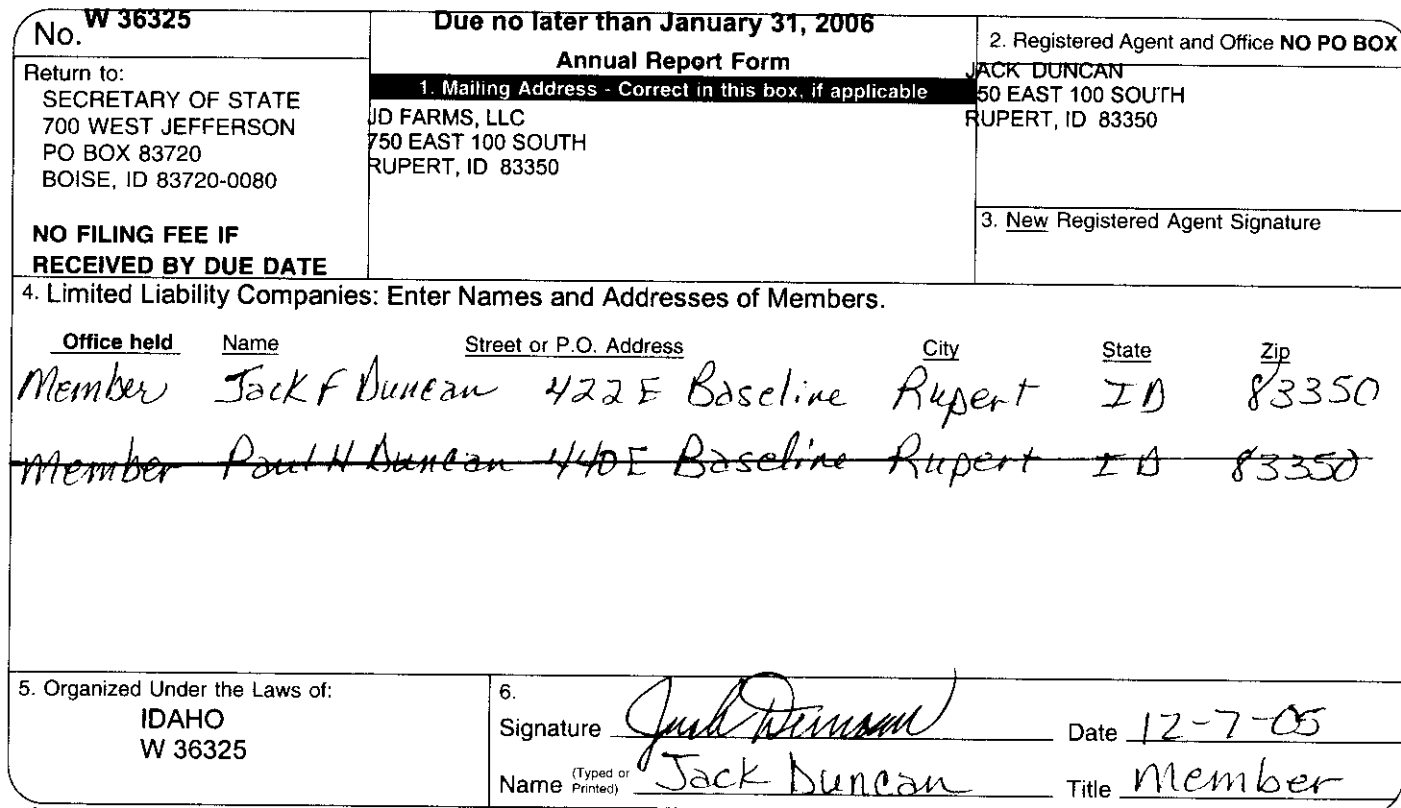 No. W 36325
Return to:
SECRETARY OF STATE
700 WEST JEFFERSON
PO BOX 83720
BOISE, ID 83720-0080
NO FILING FEE IF
RECEIVED BY DUE DATE
Due no later than January 31, 2006
Annual Report Form
1. Mailing Address - Correct in this box, if applicable
JD FARMS, LLC
750 EAST 100 SOUTH
RUPERT, ID 83350
2. Registered Agent and Office NO PO BOX
JACK DUNCAN
50 EAST 100 SOUTH
RUPERT, ID 83350
3. New Registered Agent Signature
4. Limited Liability Companies: Enter Names and Addresses of Members.
Office held Name Street or P.O. Address City State Zip
Member Jack F Duncan 422 E Baseline Rupert ID 83350
Member Paul H Duncan 440 E Baseline Rupert ID 83350
5. Organized Under the Laws of:
IDAHO
W 36325
6.
Signature Jack Duncan Date 12-7-05
Name (Typed or Printed) Jack Duncan Title Member